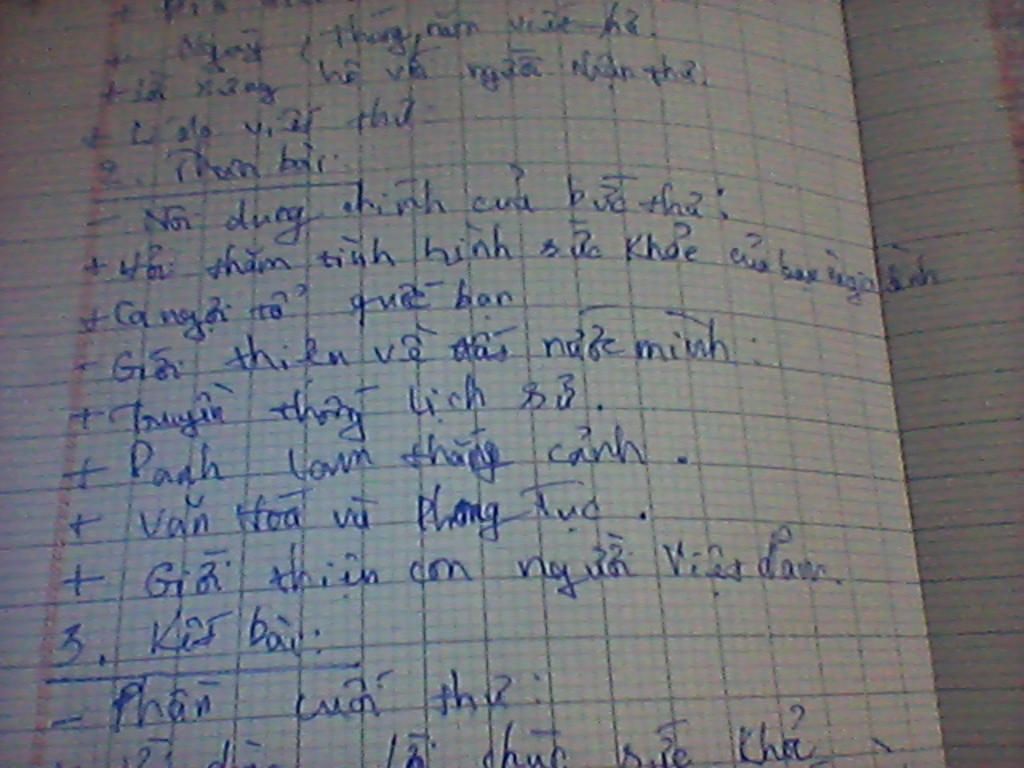 + Ngày, tháng, năm viết thư.
+ Lời xưng hô với người nhận thư.
+ Lí do viết thư.
2. Thân bài:
- Nội dung chính của bức thư:
+ Hỏi thăm tình hình sức khỏe của bạn và gia đình
+ Ca ngợi tổ quốc bạn
- Giới thiệu về đất nước mình:
+ Truyền thống lịch sử.
+ Danh lam thắng cảnh.
+ Văn hoá và phong tục.
+ Giới thiệu con người Việt Nam.
3. Kết bài:
- Phần cuối thư:
lời chúc sức khỏe